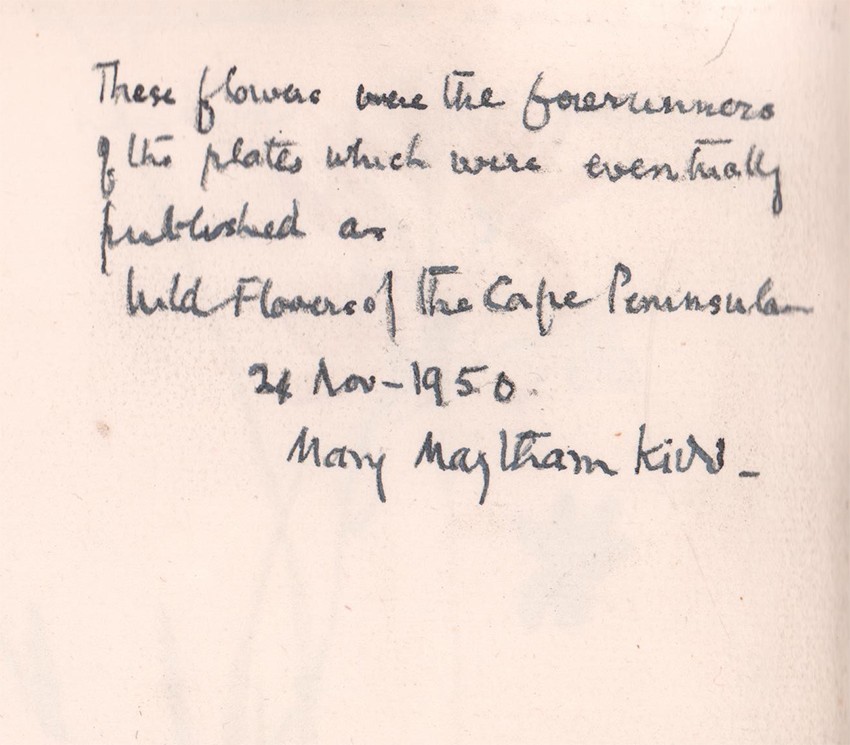 These flowers were the forerunners
of the plates which were eventually
published as
Wild Flowers of the Cape Peninsula
24 Nov - 1950.
Mary Maytham Kidd -